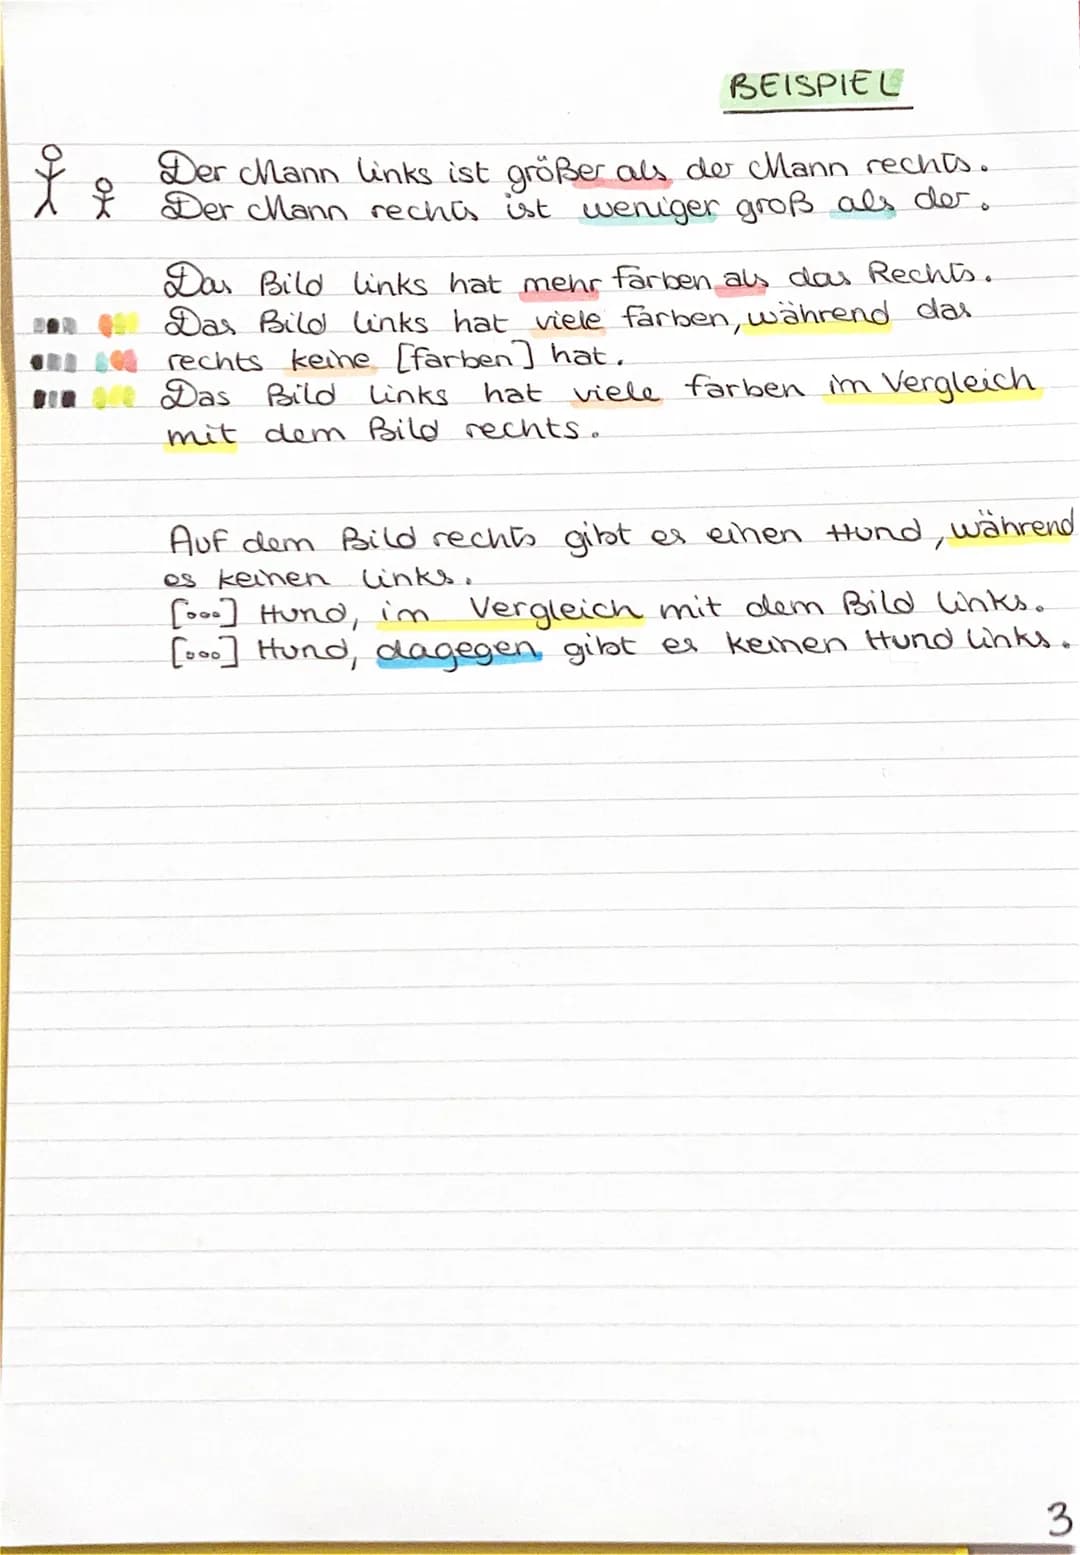 BEISPIEL
Der Mann links ist größer als der Mann rechts.
Der Mann rechts ist weniger groß als der.
Das Bild links hat mehr farben als das Rechts.
Das Bild links hat viele farben, während das
rechts keine [farben] hat.
Das Bild links hat viele farben im Vergleich
mit dem Bild rechts.
Auf dem Bild rechts gibt es einen Hund, während
es keinen links.
[...] Hund, im Vergleich mit dem Bild links.
[...] Hund, dagegen gibt es keinen Hund links.
3